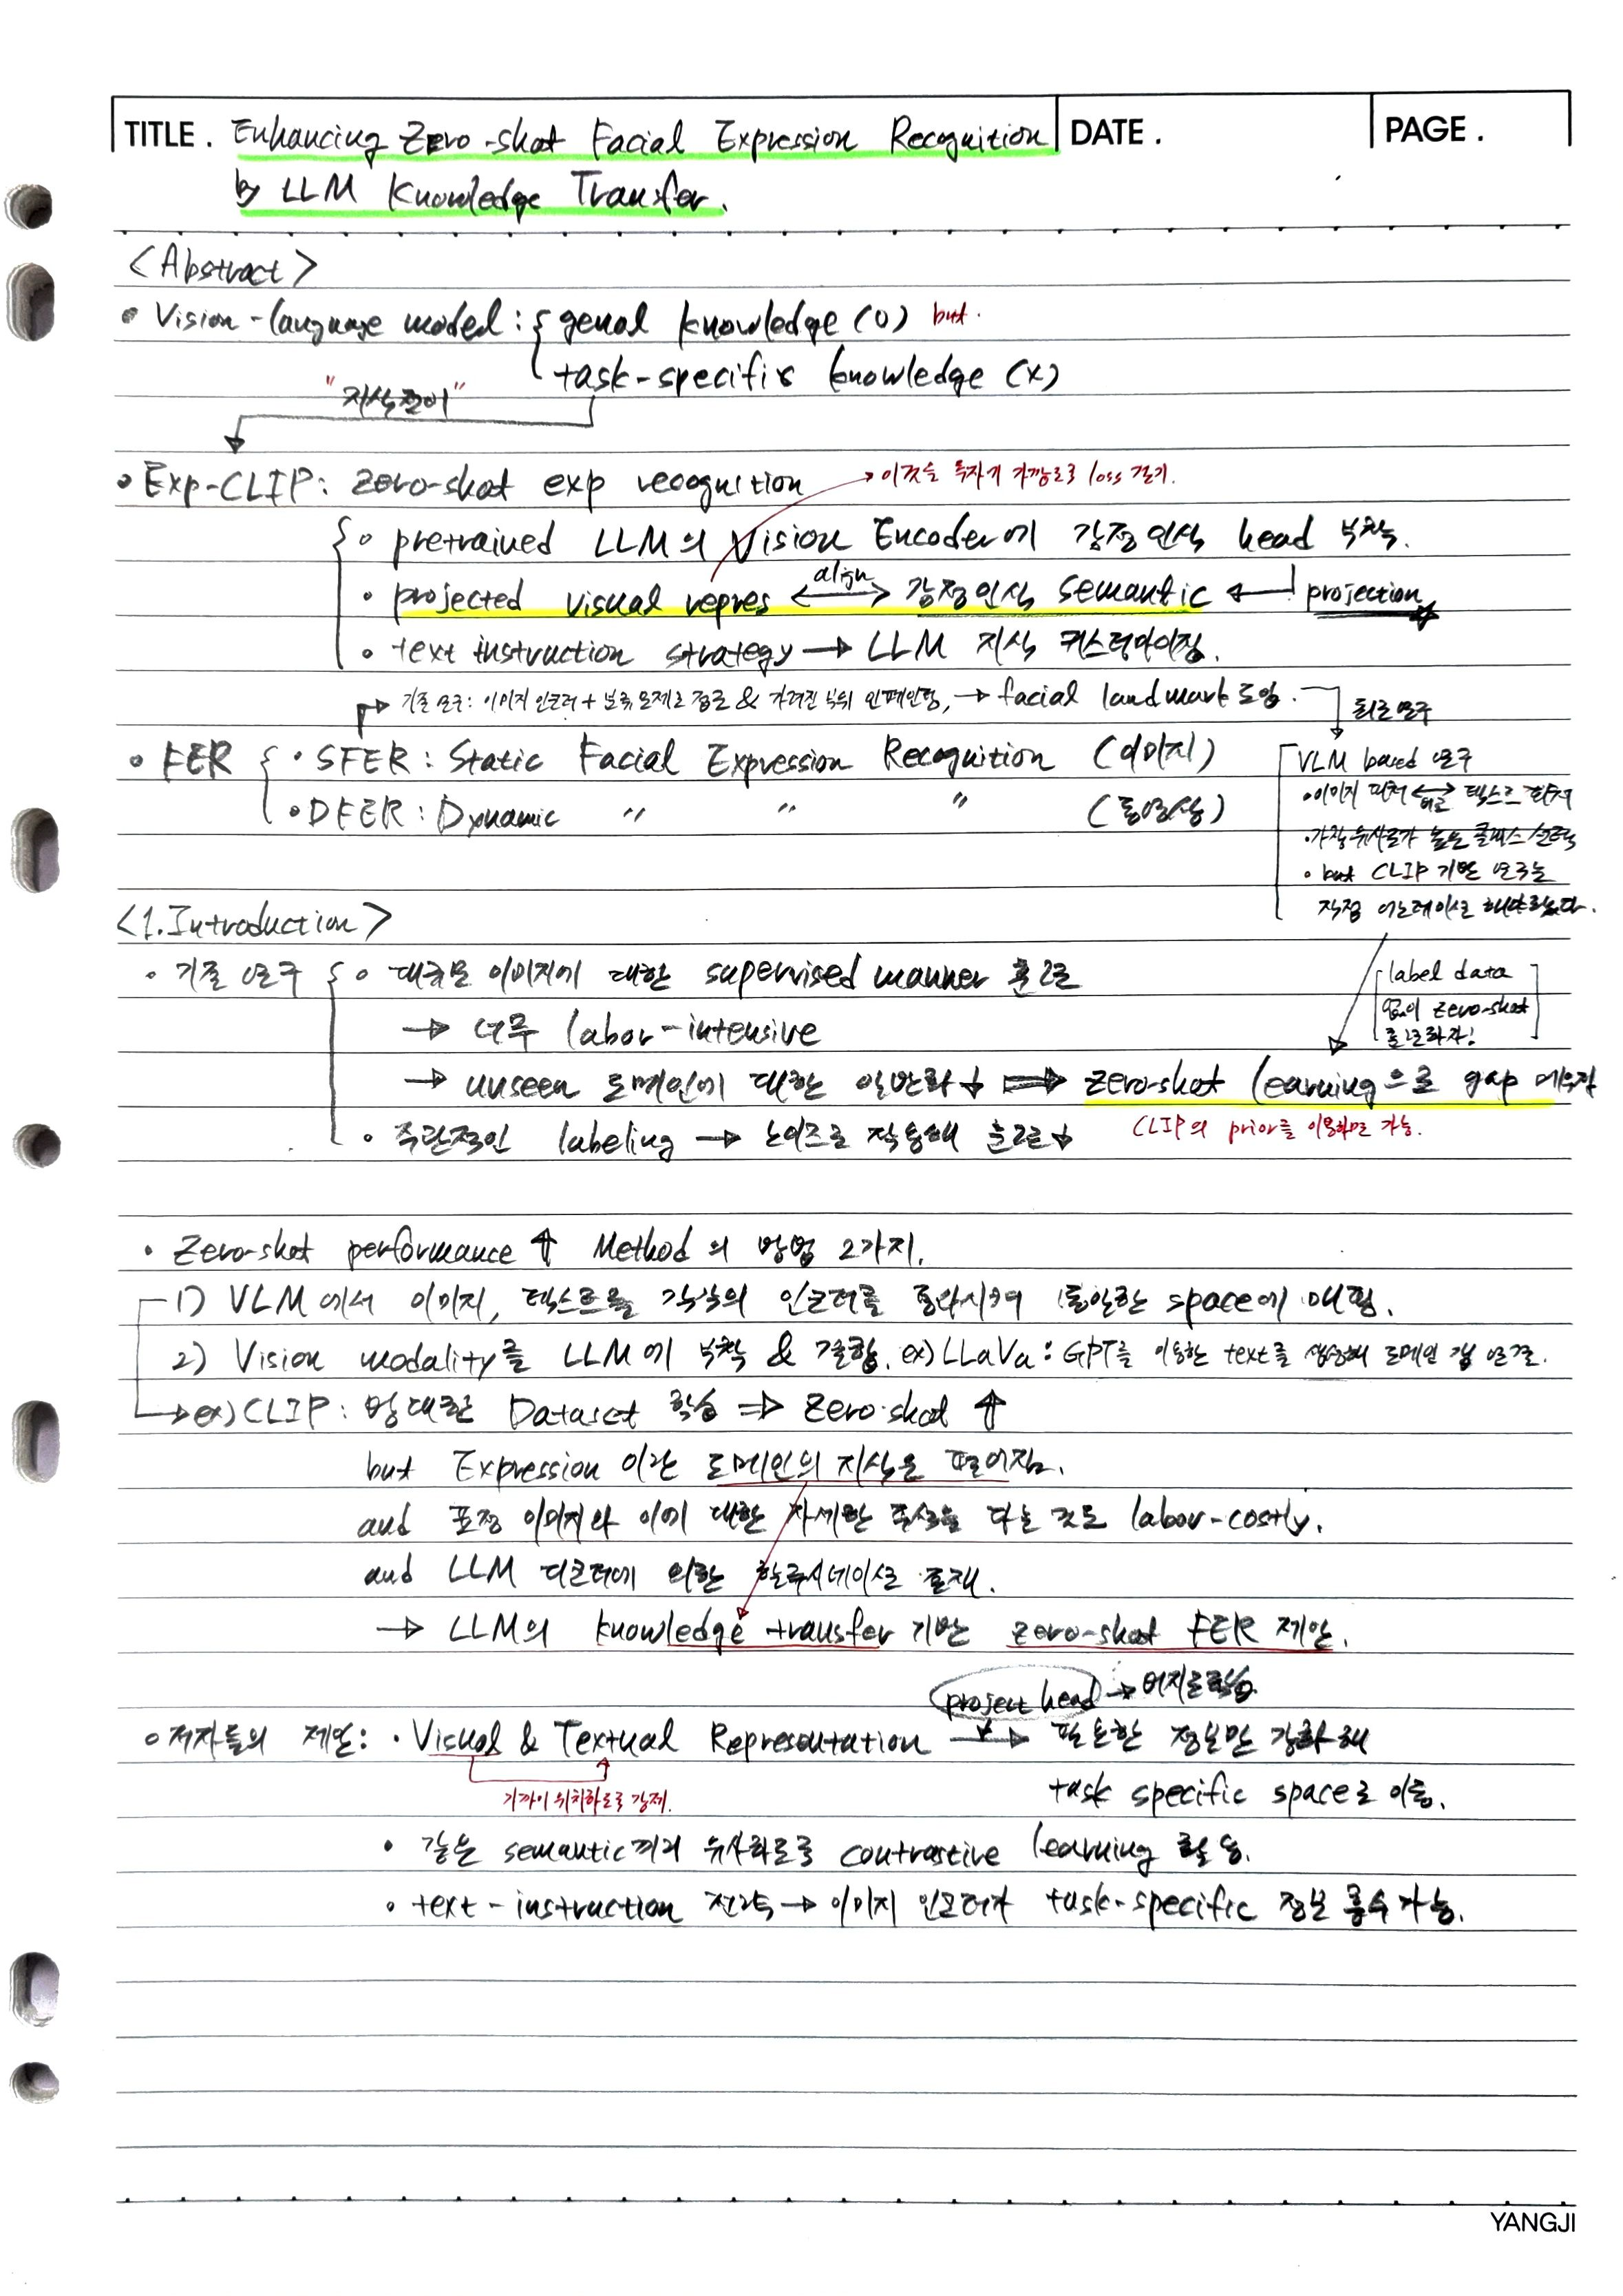 TITLE. Enhancing Zero-shot Facial Expression Recognition
DATE.
PAGE.
by LLM Knowledge Transfer.
<Abstract>
• Vision-language model : { genal knowledge (O) but.
task-specific knowledge (X)
"지식전이"
• Exp-CLIP: Zero-shot exp recognition
→ 이것을 특징이 가깝도록 loss 걸기.
• pretrained LLM의 Vision Encoder에 감정인식 head 부착.
• projected visual repres ←align→ 감정인식 semantic ← projection
• text instruction strategy → LLM 지식 커스터마이징.
→ 기존 연구: 이미지 인코더 + 분류 문제로 접근 & 가려진 부위 인페인팅, → facial landmark 도입.
최근 연구
• FER { • SFER : Static Facial Expression Recognition (이미지)
• DFER : Dynamic " " " (동영상)
VLM based 연구
• 이미지 피처 ↔ 텍스트 피처 비교
• 가장 유사도가 높은 클래스 선택
• but CLIP 기반 연구는
직접 어노테이션 해야 했다.
<1. Introduction>
• 기존 연구 { • 대규모 이미지에 대한 supervised manner 훈련
→ 너무 labor-intensive
→ unseen 도메인에 대한 일반화↓ ⇒ zero-shot learning으로 gap 메우자
label data
없이 zero-shot
훈련하자!
• 주관적인 labeling → 노이즈로 작용해 훈련↓
CLIP의 prior를 이용하면 가능.
• Zero-shot performance ↑ Method의 방법 2가지.
1) VLM에서 이미지, 텍스트를 각각의 인코더를 통과시켜 동일한 space에 매핑.
2) Vision modality를 LLM에 부착 & 결합. ex) LLaVa : GPT를 이용한 text를 생성해 도메인 갭 연결.
→ ex) CLIP : 방대한 Dataset 학습 ⇒ Zero-shot ↑
but Expression 이란 도메인의 지식은 떨어짐.
and 표정 이미지와 이에 대한 자세한 주석을 다는 것도 labor-costly.
and LLM 디코더에 의한 할루시네이션 존재.
→ LLM의 knowledge transfer 기반 zero-shot FER 제안.
project head →
• 저자들의 제안: • Visual & Textual Representation → 필요한 정보만 강화해
가까이 위치하도록 강제.
task specific space로 이동.
• 같은 semantic끼리 유사하도록 contrastive learning 활용.
• text-instruction 전략 → 이미지 인코더가 task-specific 정보 흡수 가능.
YANGJI